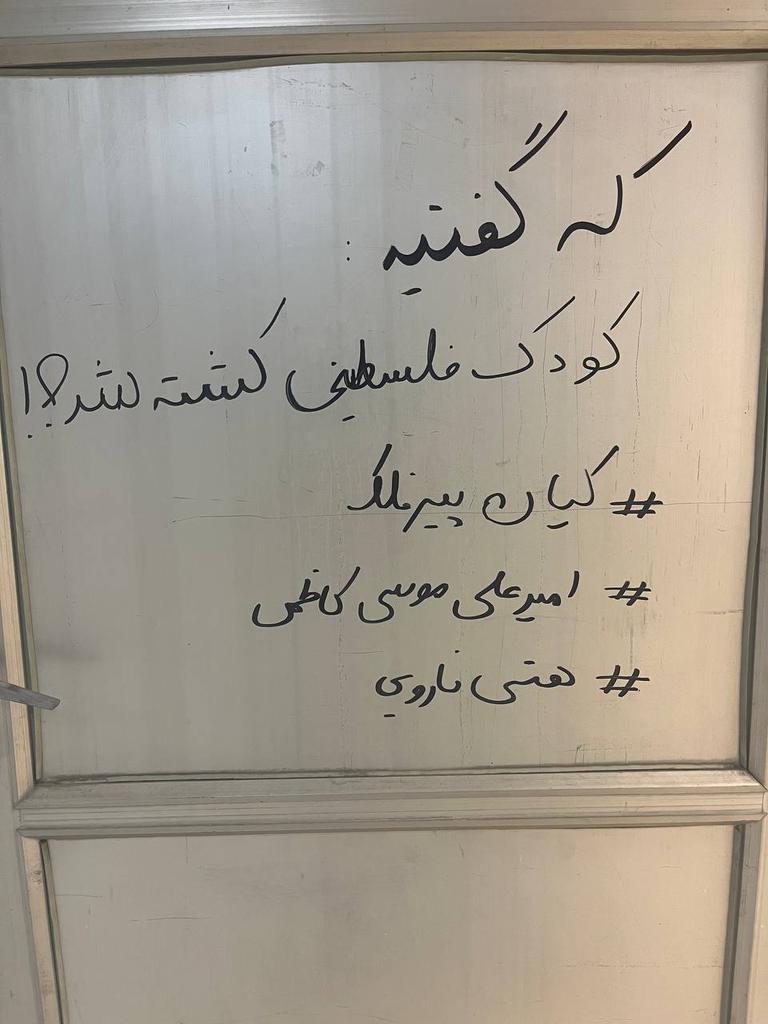 که گفتید :
کودک فلسطینی کشته شد؟!
# کیان پیرفلک
# امیرعلی موسی کاظمی
# هستی نارویی